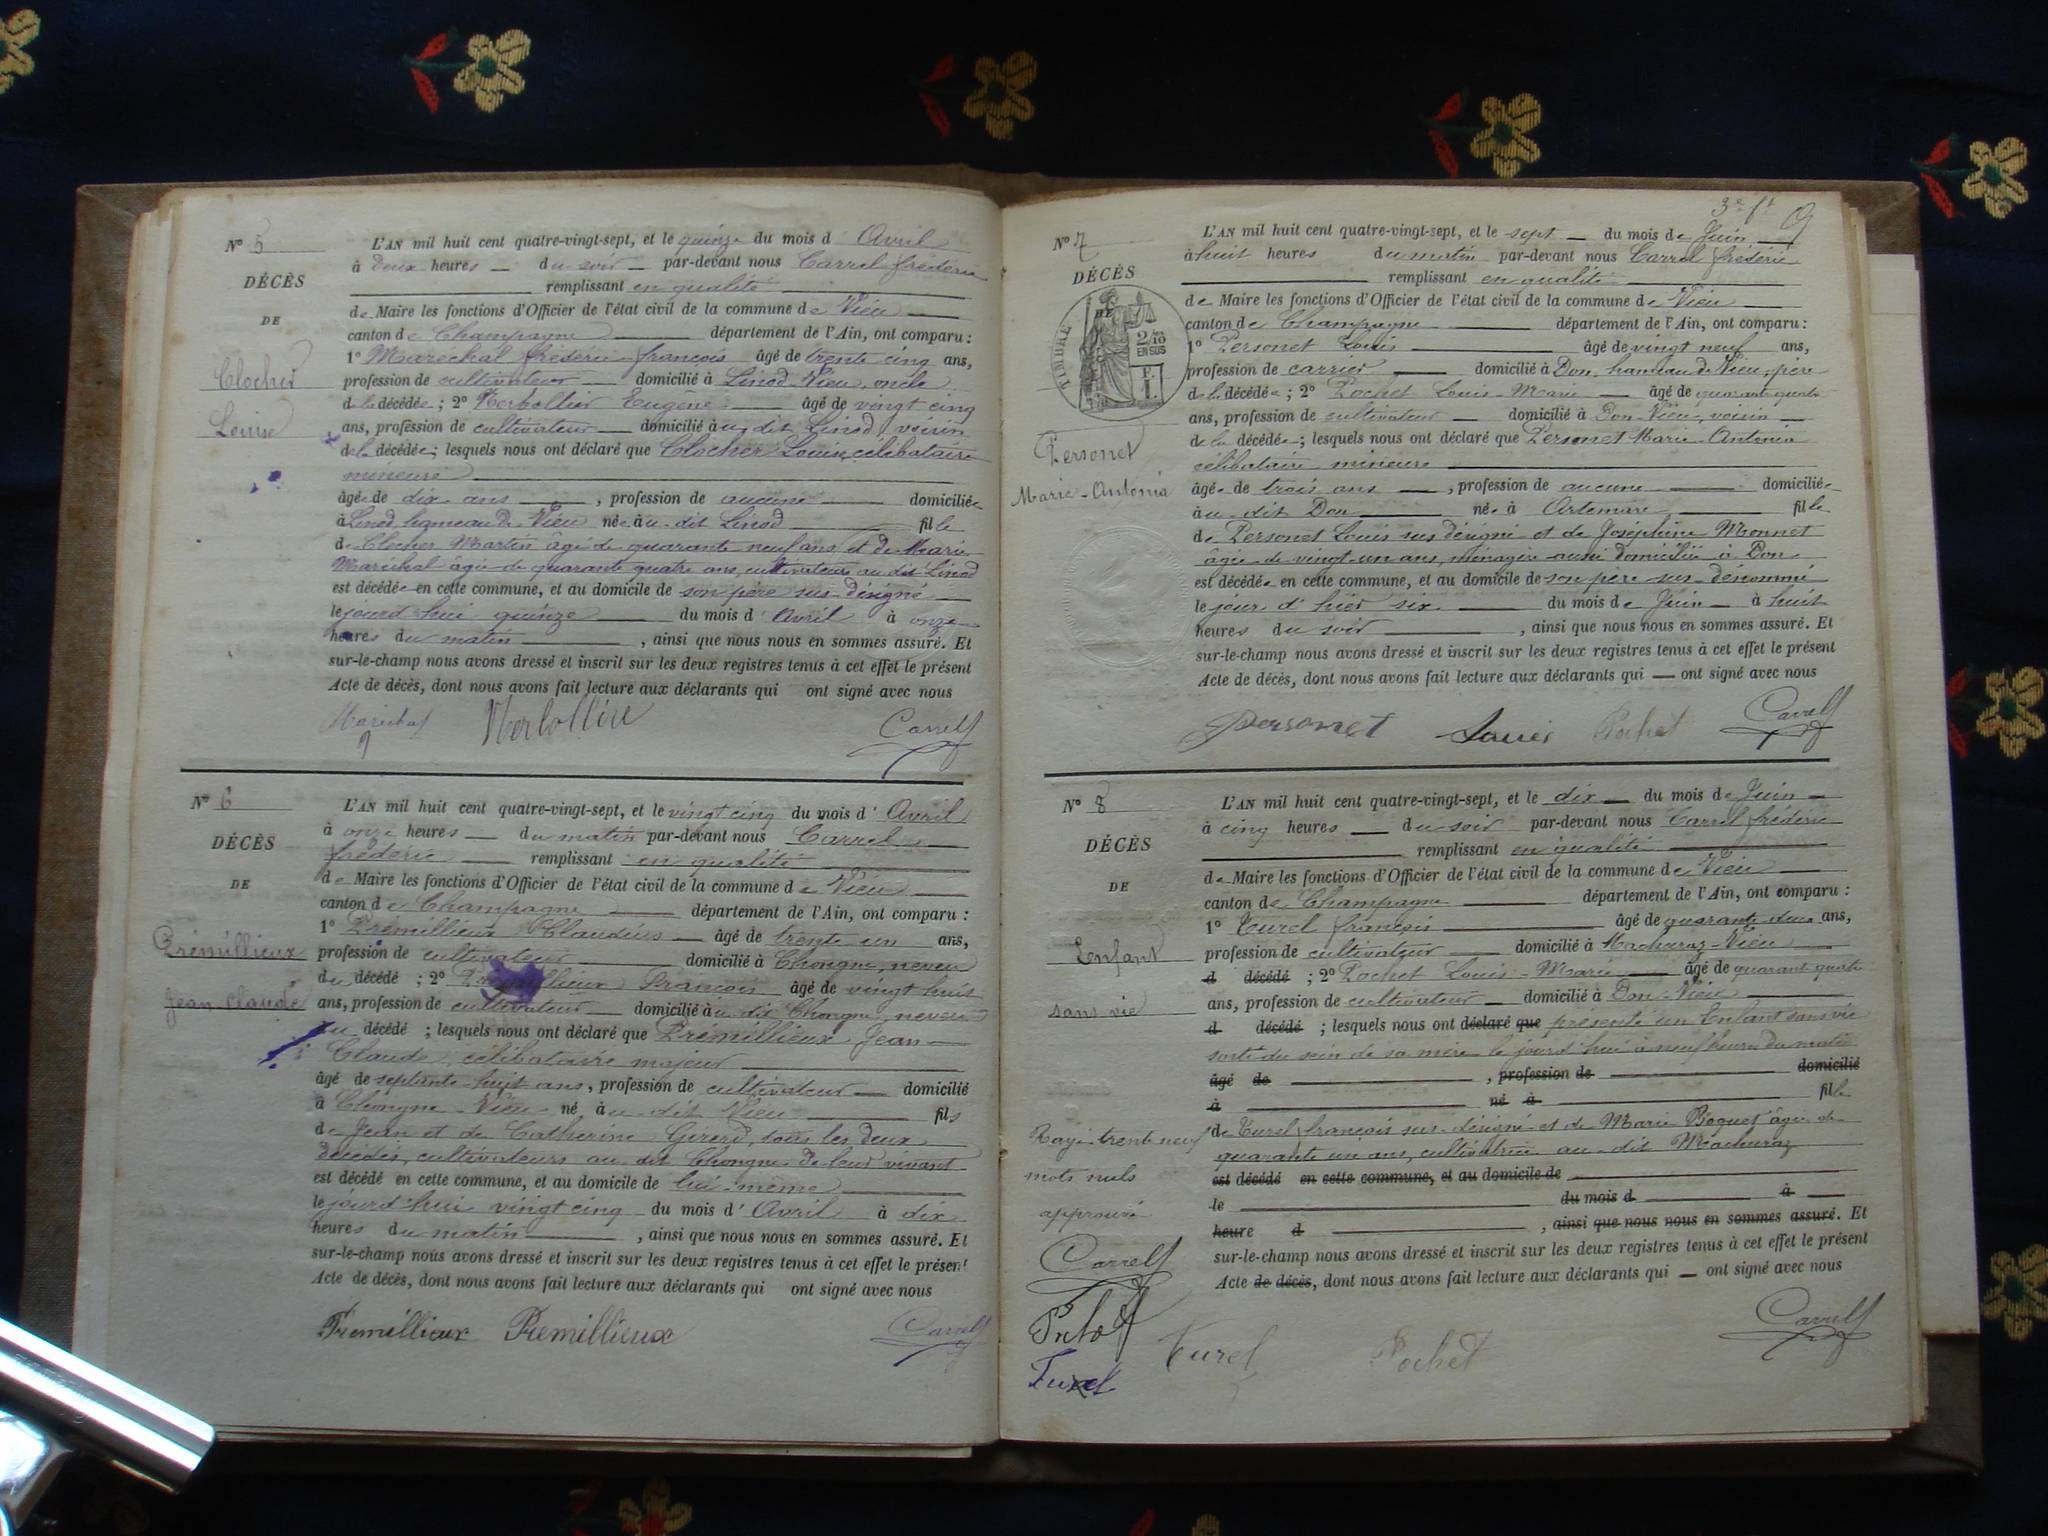 N° 5
DÉCÈS
DE
Clocher
Louise
L'AN mil huit cent quatre-vingt-sept, et le quinze du mois d' Avril
à deux heures du soir par-devant nous Carrel frédéric
remplissant en qualité
de Maire les fonctions d'Officier de l'état civil de la commune de Vieu
canton de Champagne département de l'Ain, ont comparu :
1° Maréchal frédéric françois âgé de trente cinq ans,
profession de cultivateur domicilié à Linod-Vieu, oncle
de la décédée ; 2° Eugène âgé de vingt cinq
ans, profession de cultivateur domicilié au dit Linod, voisin
de la décédée ; lesquels nous ont déclaré que Clocher Louise, célibataire
mineure
âgée de dix ans , profession de aucune domiciliée
à Linod, hameau de Vieu née à u-dit Linod fille
de Clocher Martin âgé de quarante neuf ans et de Marie
Maréchal âgée de quarante quatre ans, cultivateurs au dit Linod
est décédée en cette commune, et au domicile de son père sus-désigné
le jourd'hui quinze du mois d' Avril à onze
heures du matin , ainsi que nous nous en sommes assuré. Et
sur-le-champ nous avons dressé et inscrit sur les deux registres tenus à cet effet le présent
Acte de décès, dont nous avons fait lecture aux déclarants qui ont signé avec nous
Maréchal Carrel
N° 6
DÉCÈS
DE
Prémillieux
Jean Claude
L'AN mil huit cent quatre-vingt-sept, et le vingt cinq du mois d' Avril
à onze heures du matin par-devant nous Carrel
frédéric remplissant en qualité
de Maire les fonctions d'Officier de l'état civil de la commune de Vieu
canton de Champagne département de l'Ain, ont comparu :
1° Prémillieux Claudius âgé de trente un ans,
profession de cultivateur domicilié à Chongne, neveu
du décédé ; 2° François âgé de vingt huit
ans, profession de cultivateur domicilié à u dit Chongne, neveu
du décédé ; lesquels nous ont déclaré que Prémillieux Jean
Claude célibataire majeur
âgé de septante-huit ans, profession de cultivateur domicilié
à Chongne-Vieu né à u-dit Vieu fils
de Jean et de Catherine Girerd, tous les deux
décédés, cultivateurs au dit Chongne de leur vivant
est décédé en cette commune, et au domicile de lui-même
le jourd'hui vingt cinq du mois d' Avril à dix
heures du matin , ainsi que nous nous en sommes assuré. Et
sur-le-champ nous avons dressé et inscrit sur les deux registres tenus à cet effet le présent
Acte de décès, dont nous avons fait lecture aux déclarants qui ont signé avec nous
Premillieux Premillieux Carrel
3e ft 9
N° 7
DÉCÈS
DE
TIMBRE
2/10
EN SUS
F.
1.
Personet
Marie-Antonia
L'AN mil huit cent quatre-vingt-sept, et le sept du mois de Juin
à huit heures du matin par-devant nous Carrel frédéric
remplissant en qualité
de Maire les fonctions d'Officier de l'état civil de la commune de Vieu
canton de Champagne département de l'Ain, ont comparu :
1° Personet Louis âgé de vingt neuf ans,
profession de carrier domicilié à Don, hameau de Vieu, père
de la décédée ; 2° Pochet Louis-Marie âgé de quarante quatre
ans, profession de cultivateur domicilié à Don-Vieu, voisin
de la décédée ; lesquels nous ont déclaré que Personet Marie-Antonia
célibataire mineure
âgée de trois ans , profession de aucune domiciliée
à u-dit Don née à Artemare fille
de Personet Louis sus désigné et de Joséphine Monnet
âgée de vingt-un ans, ménagère aussi domiciliée à Don
est décédée en cette commune, et au domicile de son père sus-dénommé
le jour d'hier six du mois de Juin à huit
heures du soir , ainsi que nous nous en sommes assuré. Et
sur-le-champ nous avons dressé et inscrit sur les deux registres tenus à cet effet le présent
Acte de décès, dont nous avons fait lecture aux déclarants qui ont signé avec nous
Personet Louis Pochet Carrel
N° 8
DÉCÈS
DE
L'enfant
sans vie
L'AN mil huit cent quatre-vingt-sept, et le dix du mois de Juin
à cinq heures du soir par-devant nous Carrel frédéric
remplissant en qualité
de Maire les fonctions d'Officier de l'état civil de la commune de Vieu
canton de Champagne département de l'Ain, ont comparu :
1° Turel françois âgé de quarante deux ans,
profession de cultivateur domicilié à Machuraz-Vieu
d décédé ; 2° Pochet Louis-Marie âgé de quarante quatre
ans, profession de cultivateur domicilié à Don-Vieu
d décédé ; lesquels nous ont déclaré que présenté un Enfant sans vie
sorti du sein de sa mère le jourd'hui à neuf heures du matin
âgé de , profession de domicilié
à né à fille
de Turel françois sus-désigné et de Marie Boguet âgée de
quarante un ans, cultivatrice au-dit Machuraz
est décédé en cette commune, et au domicile de
le du mois d à
heure d , ainsi que nous nous en sommes assuré. Et
sur-le-champ nous avons dressé et inscrit sur les deux registres tenus à cet effet le présent
Acte de décès, dont nous avons fait lecture aux déclarants qui ont signé avec nous
Rayé trente neuf
mots nuls
approuvé
Carrel
Turel
Turel Pochet Carrel